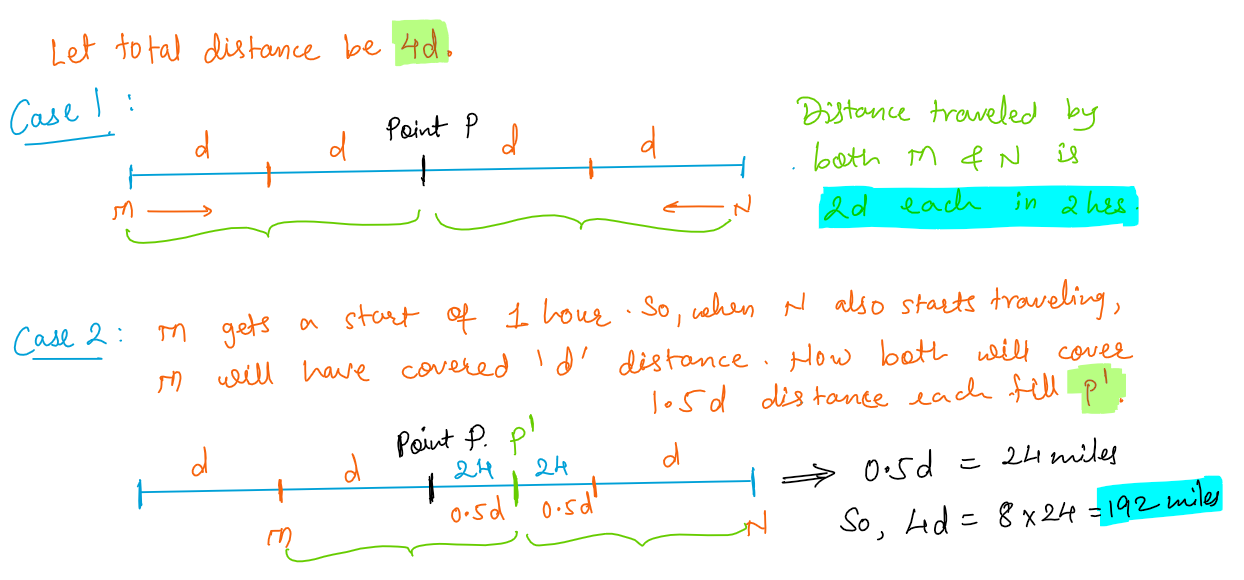 Let total distance be 4d.
Case 1 :
Point P
d d d d
M N
Distance traveled by
both M & N is
2d each in 2 hrs.
Case 2 : M gets a start of 1 hour. So, when N also starts traveling,
M will have covered 'd' distance. Now both will cover
1.5d distance each till P'.
Point P. P'
d d 24 24 d
0.5d 0.5d
M N
⇒ 0.5d = 24 miles
So, 4d = 8 x 24 = 192 miles